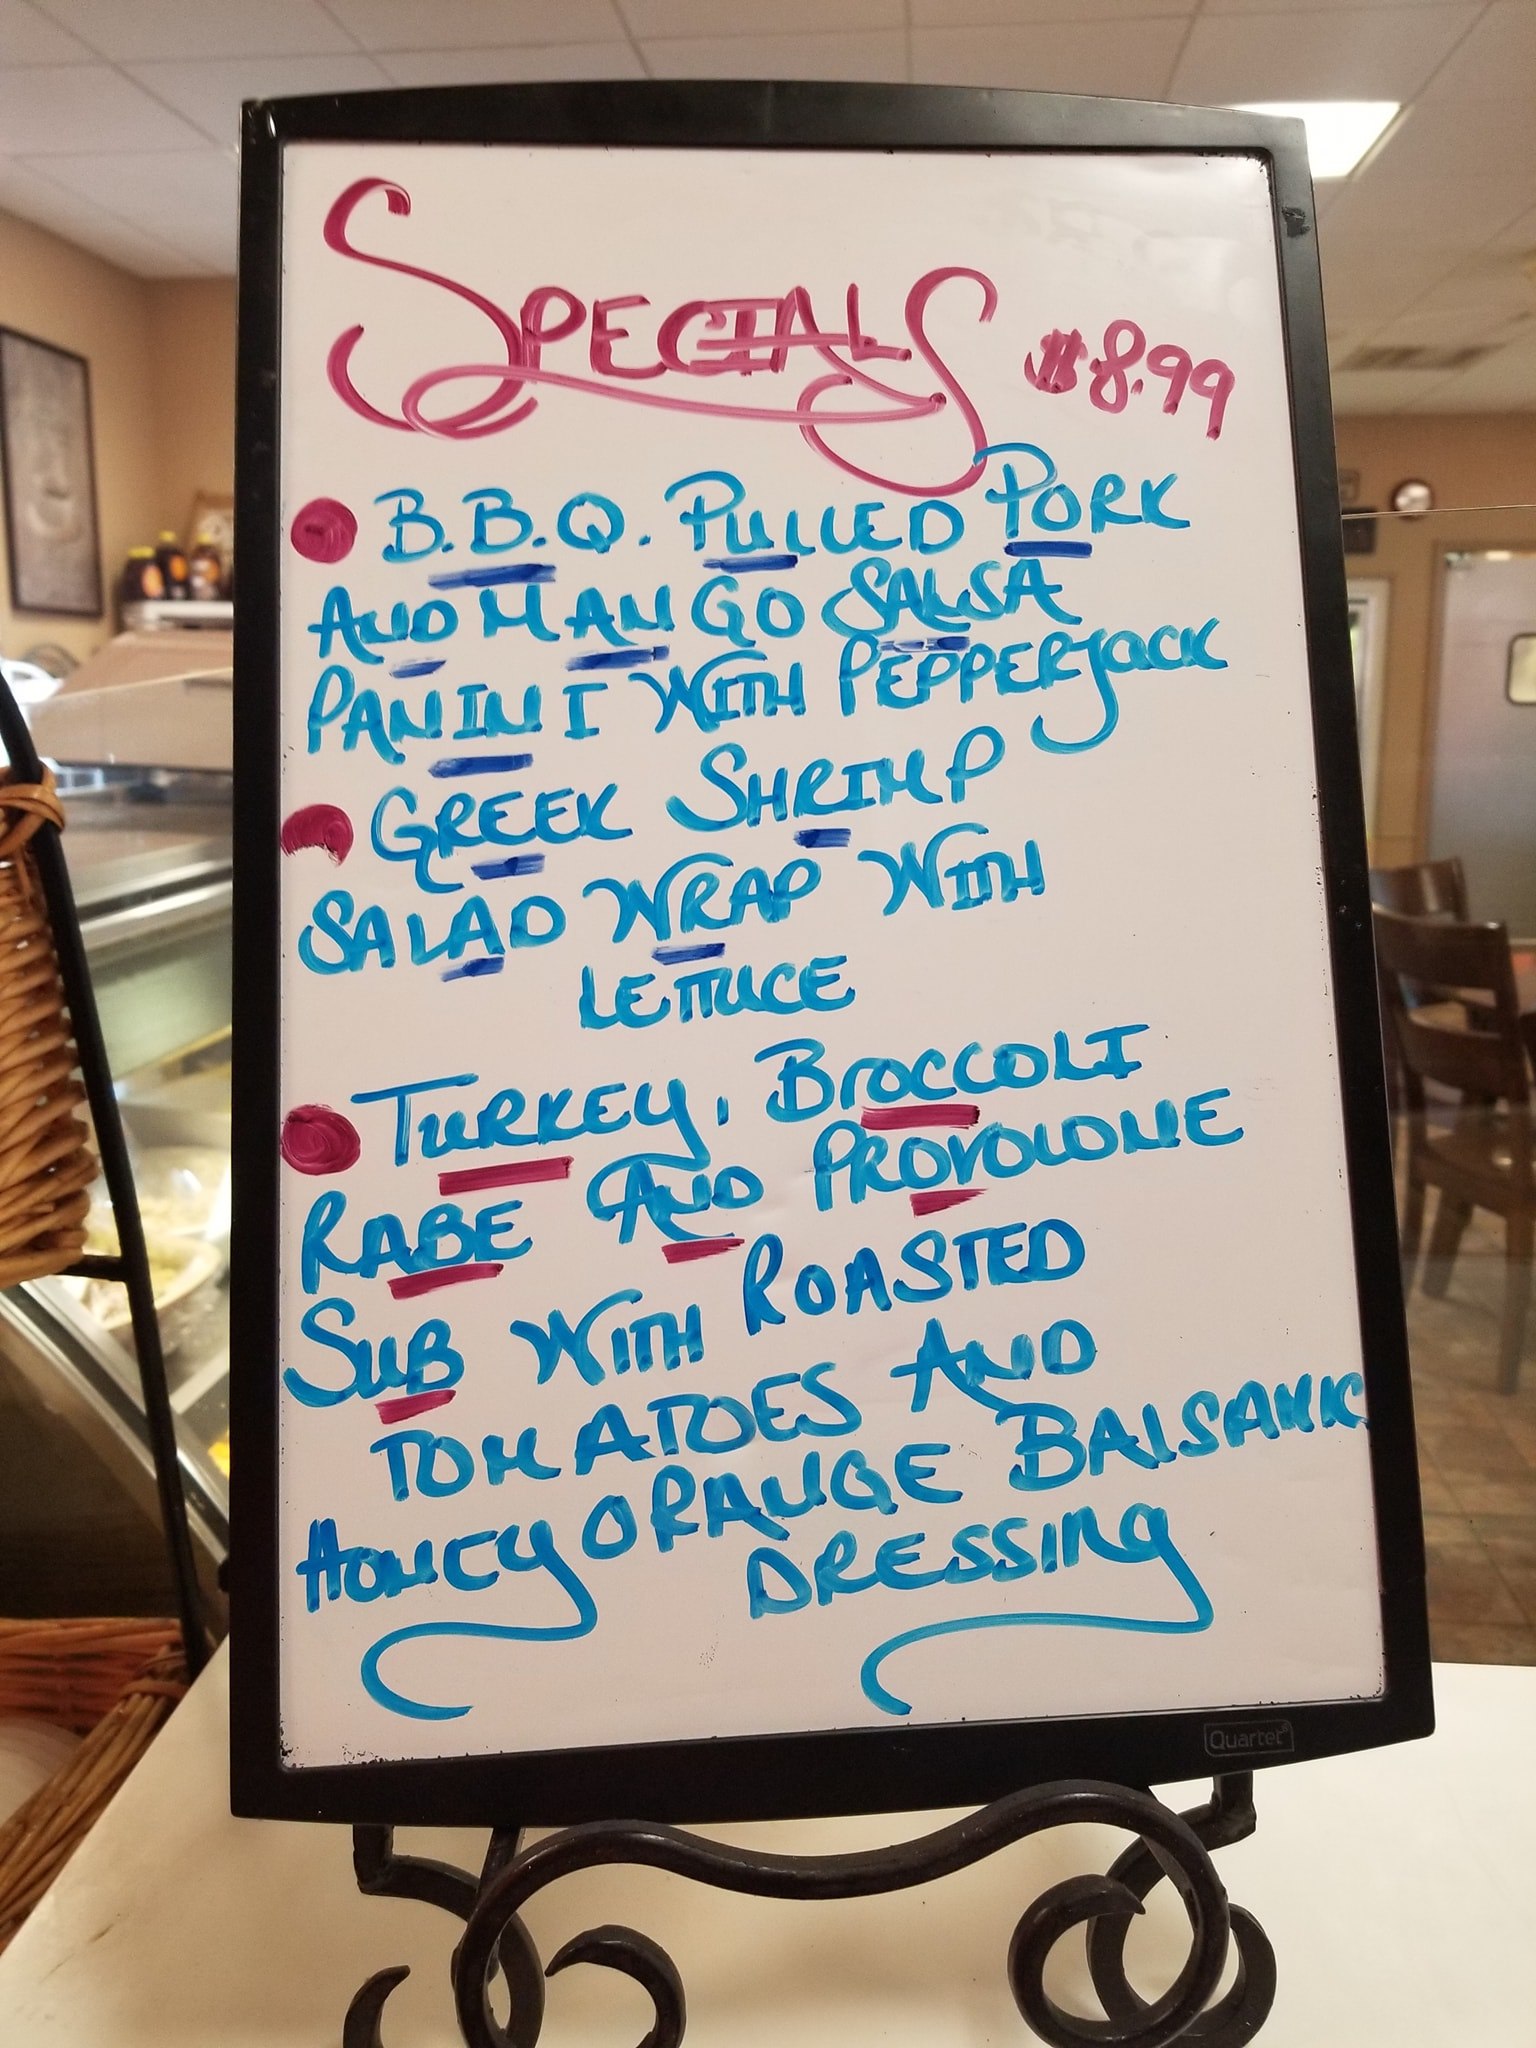 SPECIALS $8.99
B.B.Q. PULLED PORK
AND MANGO SALSA
PANINI WITH PEPPERJACK
GREEK SHRIMP
SALAD WRAP WITH
LETTUCE
TURKEY, BROCCOLI
RABE AND PROVOLONE
SUB WITH ROASTED
TOMATOES AND
HONEY ORANGE BALSAMIC
DRESSING
Quartet®